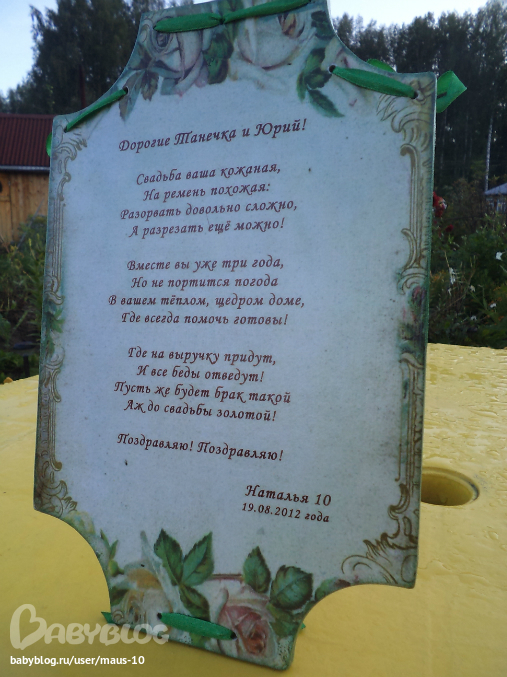 Дорогие Танечка и Юрий!
Свадьба ваша кожаная,
На ремень похожая:
Разорвать довольно сложно,
А разрезать ещё можно!
Вместе вы уже три года,
Но не портится погода
В вашем тёплом, щедром доме,
Где всегда помочь готовы!
Где на выручку придут,
И все беды отведут!
Пусть же будет брак такой
Аж до свадьбы золотой!
Поздравляю! Поздравляю!
Наталья 10
19.08.2012 года
BABYBLOG
babyblog.ru/user/maus-10